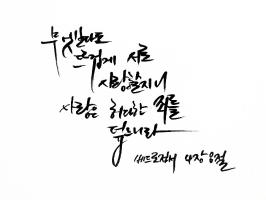 무엇보다도
뜨겁게 서로
사랑할지니
사랑은 허다한 죄를
덮느니라
베드로전서 4장 8절